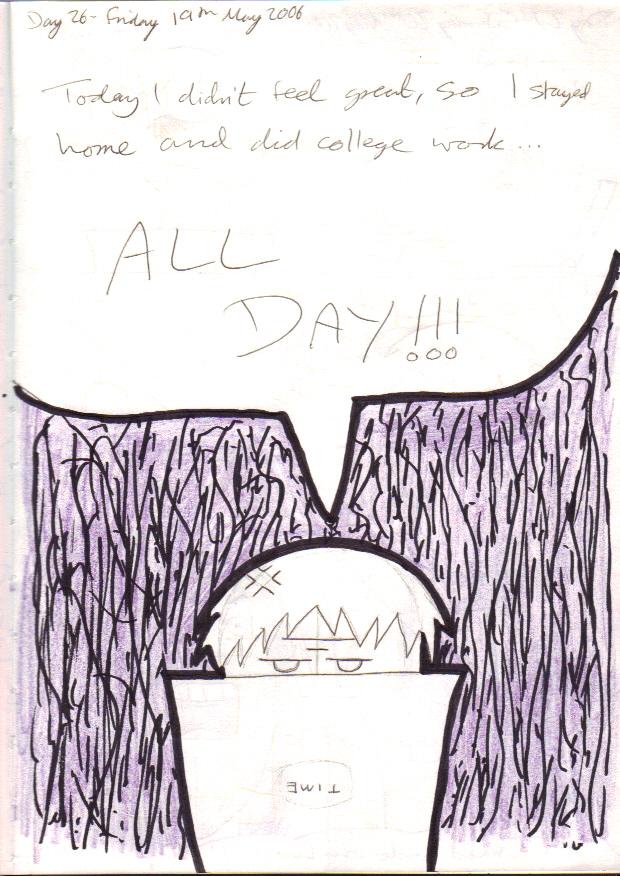 Day 26 - Friday 19th May 2006
Today I didn't feel great, so I stayed
home and did college work...
ALL
DAY!!!
TIME